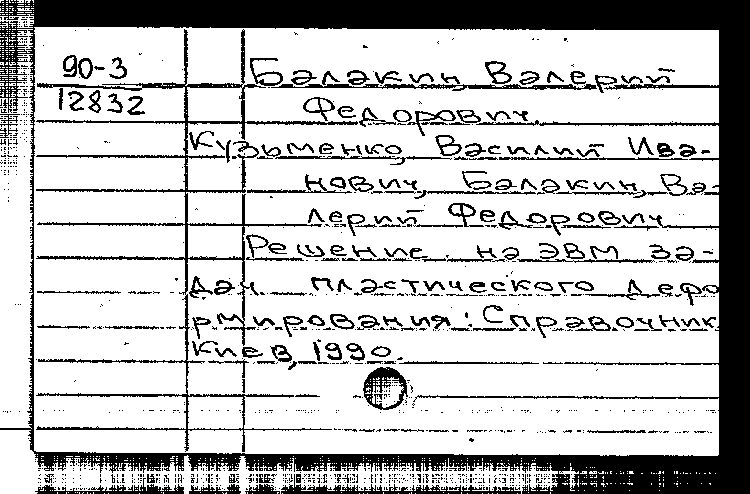 90-3
12832
Балакин, Валерий
Федорович.
Кузьменко, Василий Ива-
нович, Балакин, Ва-
лерий Федорович
Решение на ЭВМ за-
дач пластического дефо
рмирования: Справочник
Киев, 1990.